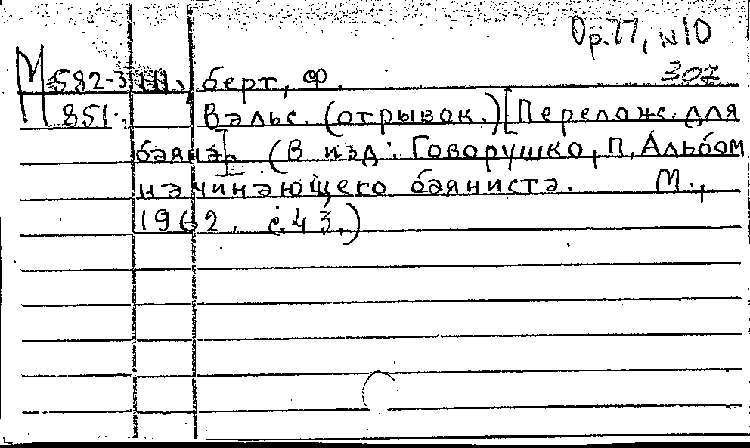 Op.77, №10
307
М 582-3 Шуберт, Ф.
П 851. Вальс. (отрывок.) [Перелож. для
баяна]. (В изд.: Говорушко, П. Альбом
начинающего баяниста. М.,
1962. с.43.)